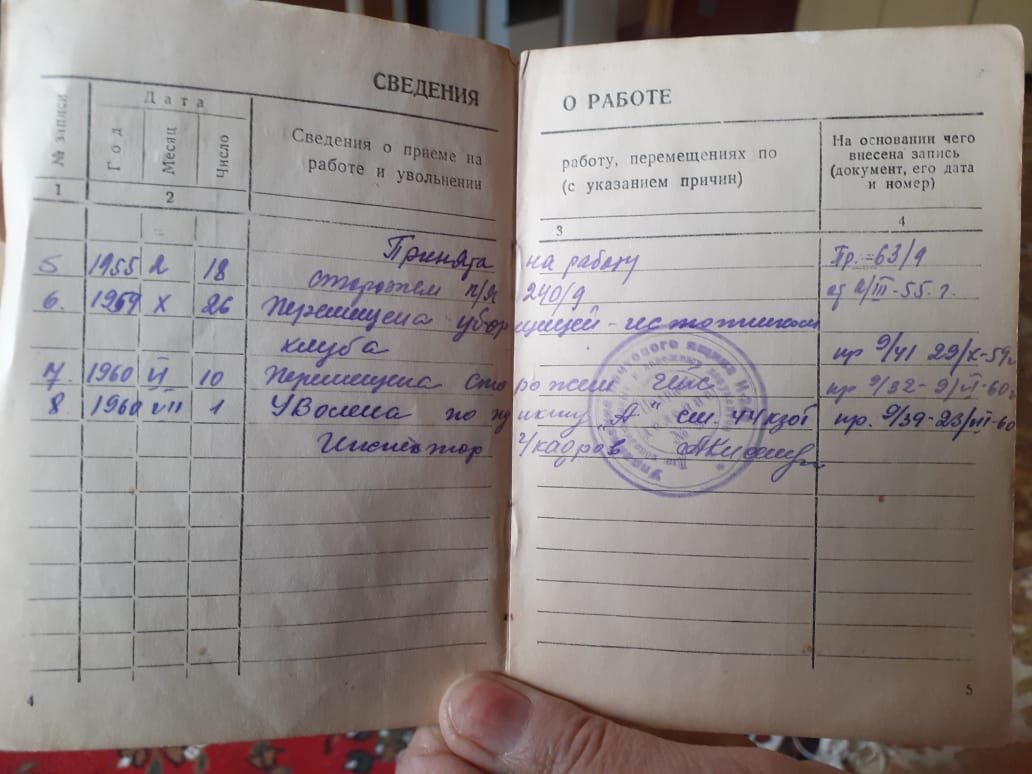 СВЕДЕНИЯ О РАБОТЕ
№ записи
Дата
Год
Месяц
Число
Сведения о приеме на работу, перемещениях по
работе и увольнении (с указанием причин)
На основании чего
внесена запись
(документ, его дата
и номер)
1 2 3 4
5 1955 2 18 Принята на работу Пр. 63/9
сторожем п/я 240/9 от 2/III-55 г.
6. 1959 X 26 Перемещена уборщицей-истопником
клуба пр 9/41 29/X-59г
7. 1960 VI 10 Перемещена сторожем пр 9/32-9/VI-60г
8 1960 VII 1 Уволена по пункту "А" ст. 44 кзот пр. 9/39-23/VI-60
Инспектор ч/кадров
4
5